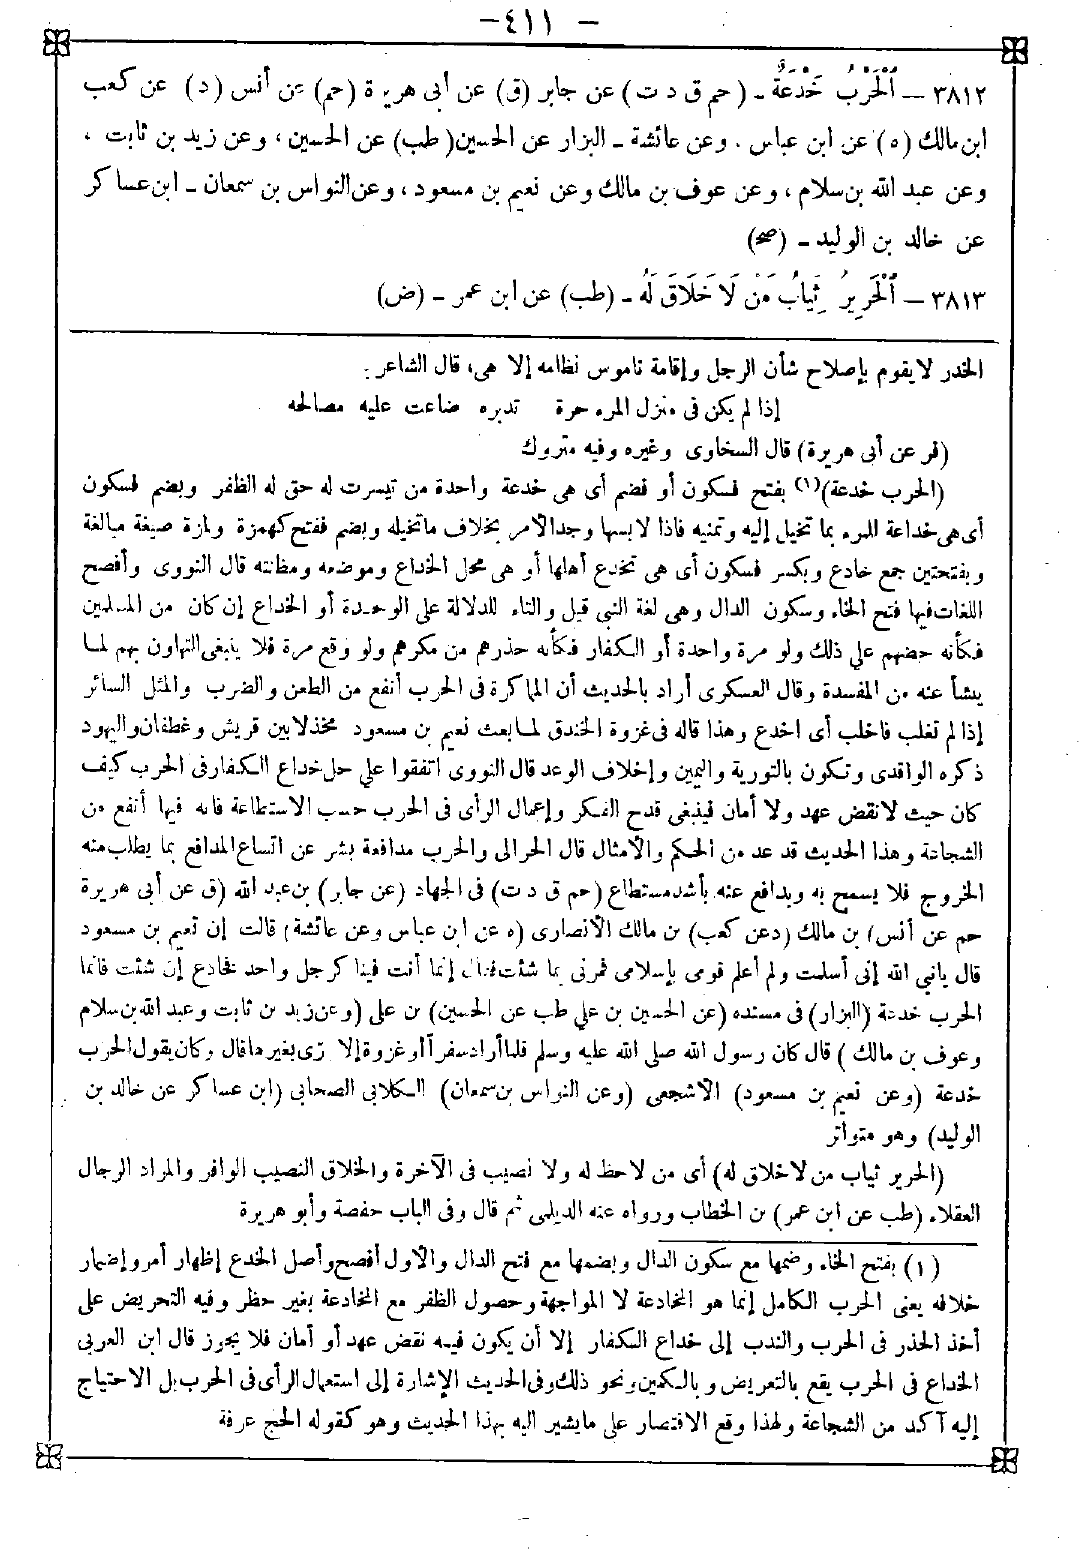 – ٤١١ –
٣٨١٢ – اَلْحَرْبُ خَدْعَةٌ – (حم ق د ت) عن جابر (ق) عن أبى هريرة (حم) عن أنس (د) عن كعب
ابن مالك (ه) عن ابن عباس، وعن عائشة – البزار عن الحسين (طب) عن الحسين، وعن زيد بن ثابت،
وعن عبد الله بن سلام، وعن عوف بن مالك وعن نعيم بن مسعود، وعن النواس بن سمعان – ابن عساكر
عن خالد بن الوليد – (صح)
٣٨١٣ – اَلْحَرِيرُ ثِيَابُ مَنْ لَا خَلَاقَ لَهُ – (طب) عن ابن عمر – (ض)
الخدر لا يقوم بإصلاح شأن الرجل وإقامة ناموس نظامه إلا هى، قال الشاعر:
إذا لم يكن فى منزل المرء حرة تدبره ضاعت عليه مصالحه
(فر عن أبى هريرة) قال السخاوى وغيره وفيه متروك
(الحرب خدعة)(١) بفتح فسكون أو فضم أى هى خدعة واحدة من تيسرت له حق له الظفر وبضم فسكون
أى هى خداعة للمرء بما تخيل إليه وتمنيه فاذا لابسها وجد الأمر بخلاف ماتخيله وبضم ففتح كهمزة ولمزة صيغة مبالغة
وبفتحتين جمع خادع وبكسر فسكون أى هى تخدع أهلها أو هى محل الخداع وموضعه ومظانته قال النووى وأفصح
اللغات فيها فتح الخاء وسكون الدال وهى لغة النبى قيل والتاء للدلالة على الوحدة أو الخداع إن كان من المسلمين
فكأنه حضهم على ذلك ولو مرة واحدة أو الكفار فكأنه حذرهم من مكرهم ولو وقع مرة فلا ينبغى التهاون بهم لما
ينشأ عنه من المفسدة وقال العسكرى أراد بالحديث أن المماكرة فى الحرب أنفع من الطعن والضرب والمثل السائر
إذا لم تغلب فاخلب أى اخدع وهذا قاله فى غزوة الخندق لما بعث نعيم بن مسعود مخذلا بين قريش وغطفان واليهود
ذكره الواقدى وتكون بالتورية واليمين وإخلاف الوعد قال النووى اتفقوا على حل خداع الكفار فى الحرب كيف
كان حيث لانقض عهد ولا أمان فينبغى قدح الفكر وإعمال الرأى فى الحرب حسب الاستطاعة فانه فيها أنفع من
الشجاعة وهذا الحديث قد عد من الحكم والأمثال قال الحرالى والحرب مدافعة بشر عن اتساع المدافع بما يطلب منه
الخروج فلا يسمح به ويدافع عنه بأشد مستطاع (حم ق د ت) فى الجهاد (عن جابر) بن عبد الله (ق عن أبى هريرة
حم عن أنس) بن مالك (د عن كعب) بن مالك الأنصارى (ه عن ابن عباس وعن عائشة) قالت إن نعيم بن مسعود
قال يانبي الله إنى أسلمت ولم أعلم قومى بإسلامى فمرنى بما شئت فقال إنما أنت فينا كرجل واحد فخادع إن شئت فانما
الحرب خدعة (البزار) فى مسنده (عن الحسين بن على طب عن الحسين) بن على (وعن زيد بن ثابت وعبد الله بن سلام
وعوف بن مالك) قال كان رسول الله صلى الله عليه وسلم قلما أراد سفراً أو غزوة إلا ورى بغيرها قال وكان يقول الحرب
خدعة (وعن نعيم بن مسعود) الأشجعى (وعن النواس بن سمعان) الكلابى الصحابى (ابن عساكر عن خالد بن
الوليد) وهو متواتر
(الحرير ثياب من لا خلاق له) أى من لاحظ له ولا نصيب فى الآخرة والخلاق النصيب الوافر والمراد الرجال
العقلاء (طب عن ابن عمر) بن الخطاب ورواه عنه الديلمى ثم قال وفى الباب حفصة وأبو هريرة
(١) بفتح الخاء وضمها مع سكون الدال وبضمها مع فتح الدال والأول أفصح وأصل الخدع إظهار أمر وإضمار
خلافه يعنى الحرب الكامل إنما هو المخادعة لا المواجهة وحصول الظفر مع المخادعة بغير حظر وفيه التحريض على
أخذ الحذر فى الحرب والندب إلى خداع الكفار إلا أن يكون فيه نقض عهد أو أمان فلا يجوز قال ابن العربى
الخداع فى الحرب يقع بالتعريض وبالكمين ونحو ذلك وفى الحديث الإشارة إلى استعمال الرأى فى الحرب بل الاحتياج
إليه آكد من الشجاعة ولهذا وقع الاقتصار على مايشير اليه بهذا الحديث وهو كقوله الحج عرفة